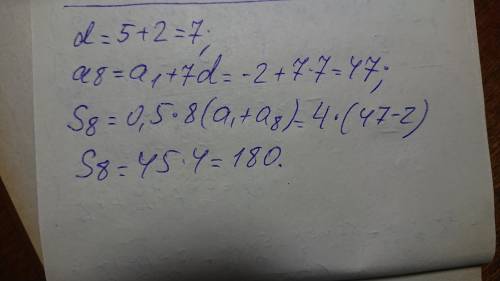 d = 5+2 = 7;
a8 = a1+7d = -2+7·7 = 47;
S8 = 0,5·8(a1+a8) = 4·(47-2)
S8 = 45·4 = 180.